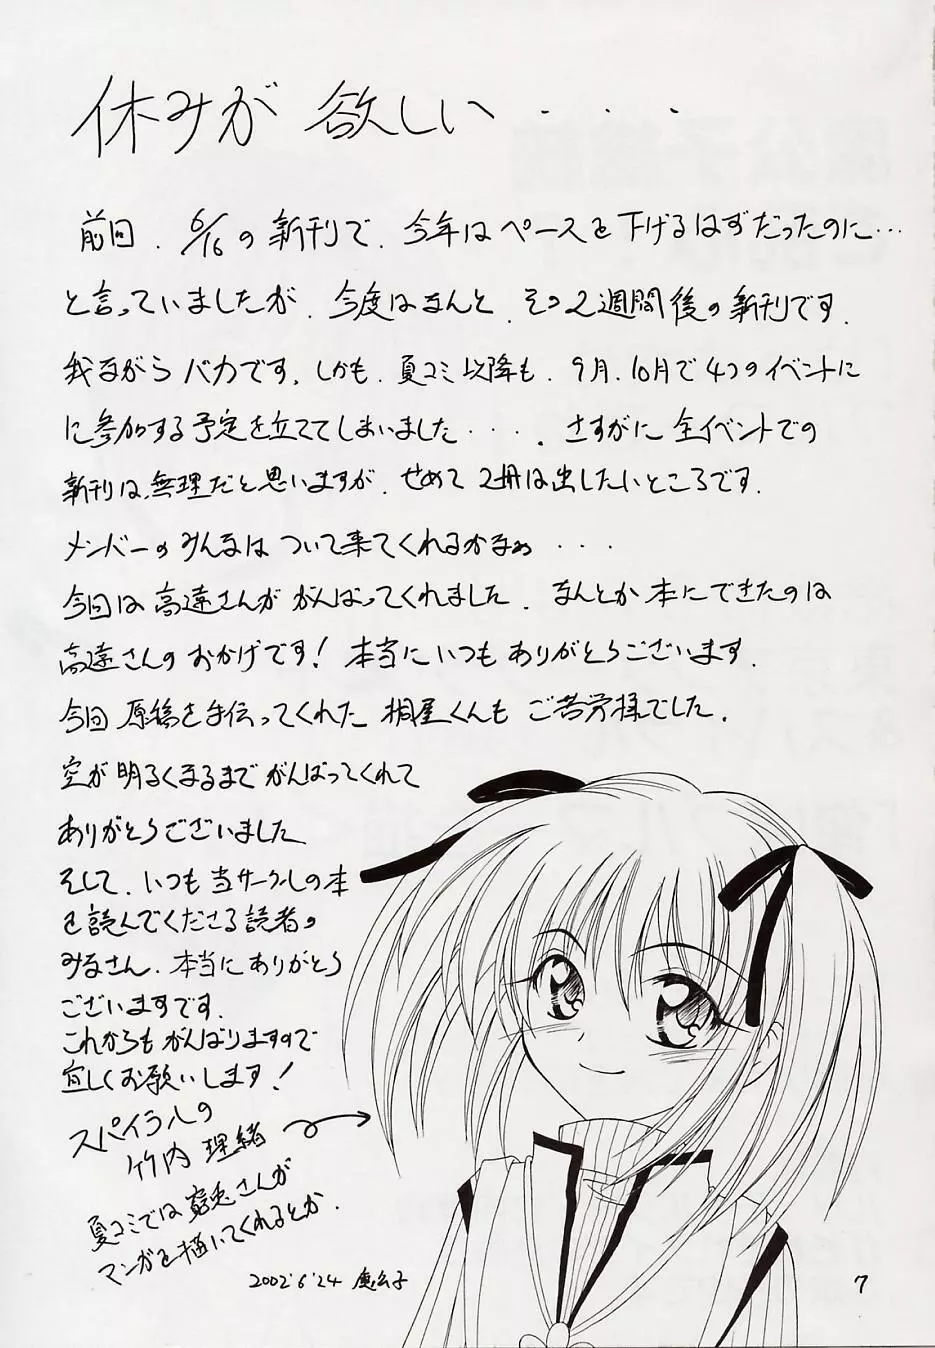 休みが 欲しい・・・
前回、6/16の新刊で、今年はペースを下げるはずだったのに…
と言っていましたが、今度はなんと、その2週間後の新刊です。
我ながらバカです。しかも、夏コミ以降も、9月、10月で4つのイベントに
に参加する予定を立ててしまいました・・・。さすがに全イベントでの
新刊は、無理だと思いますが、せめて2冊は出したいところです。
メンバーのみんなは ついて来てくれるかなぁ・・・
今回は高遠さんが がんばってくれました。なんとか本にできたのは
高遠さんのおかげです！本当にいつもありがとうございます。
今回 原稿を手伝ってくれた 桐屋くんも ご苦労様でした。
空が明るくなるまで がんばってくれて
ありがとうございました
そして、いつも当サークルの本
を読んでくださる読者の
みなさん、本当にありがとう
ございますです。
これからもがんばりますので
宜しくお願いします！
スパイラルの
竹内 理緒
夏コミでは 兎さんが
マンガを描いてくれるとか。
2002'6'24 公子
7